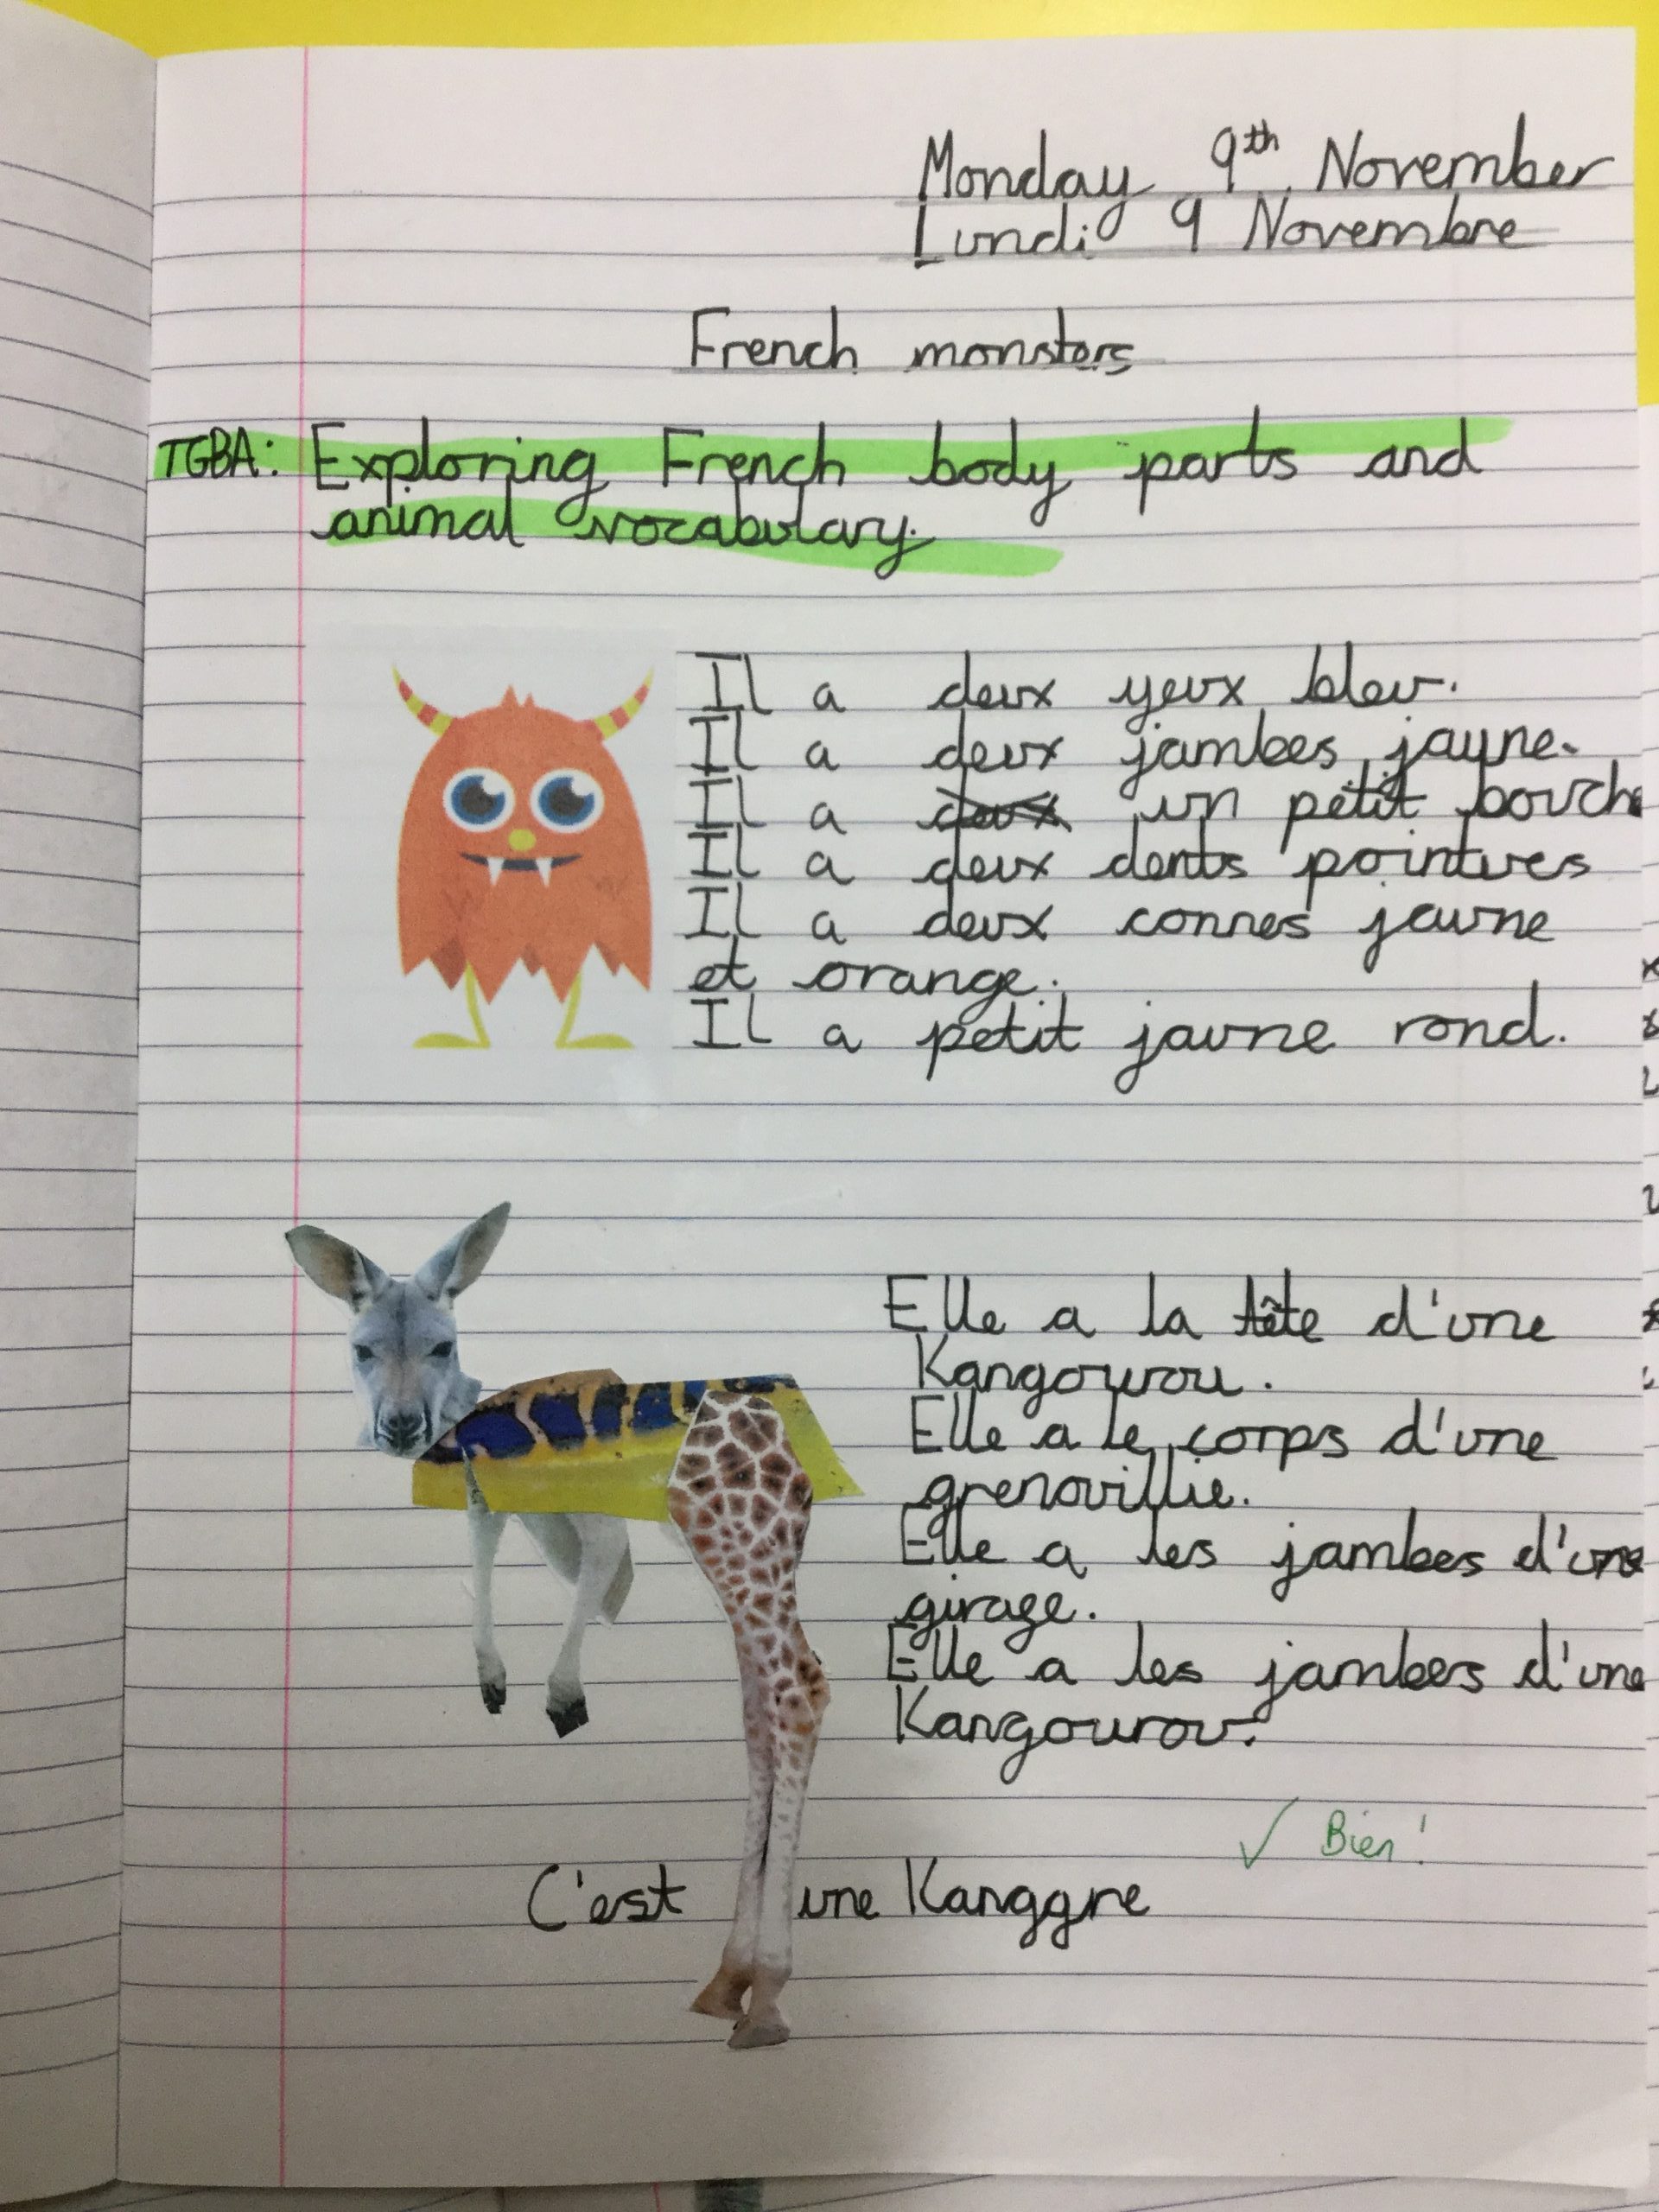 Monday 9th November
Lundi 9 Novembre
French monsters
TGBA: Exploring French body parts and
animal vocabulary.
Il a deux yeux bleu.
Il a deux jambes jayne.
Il a un petit bouche
Il a deux dents pointues
Il a deux connes jaune
et orange.
Il a petit jaune rond.
Elle a la tête d'une
Kangourou.
Elle a le corps d'une
grenouillie.
Elle a les jambes d'une
girage.
Elle a les jambes d'une
Kangourou.
✓ Bien!
C'est une Kanggre